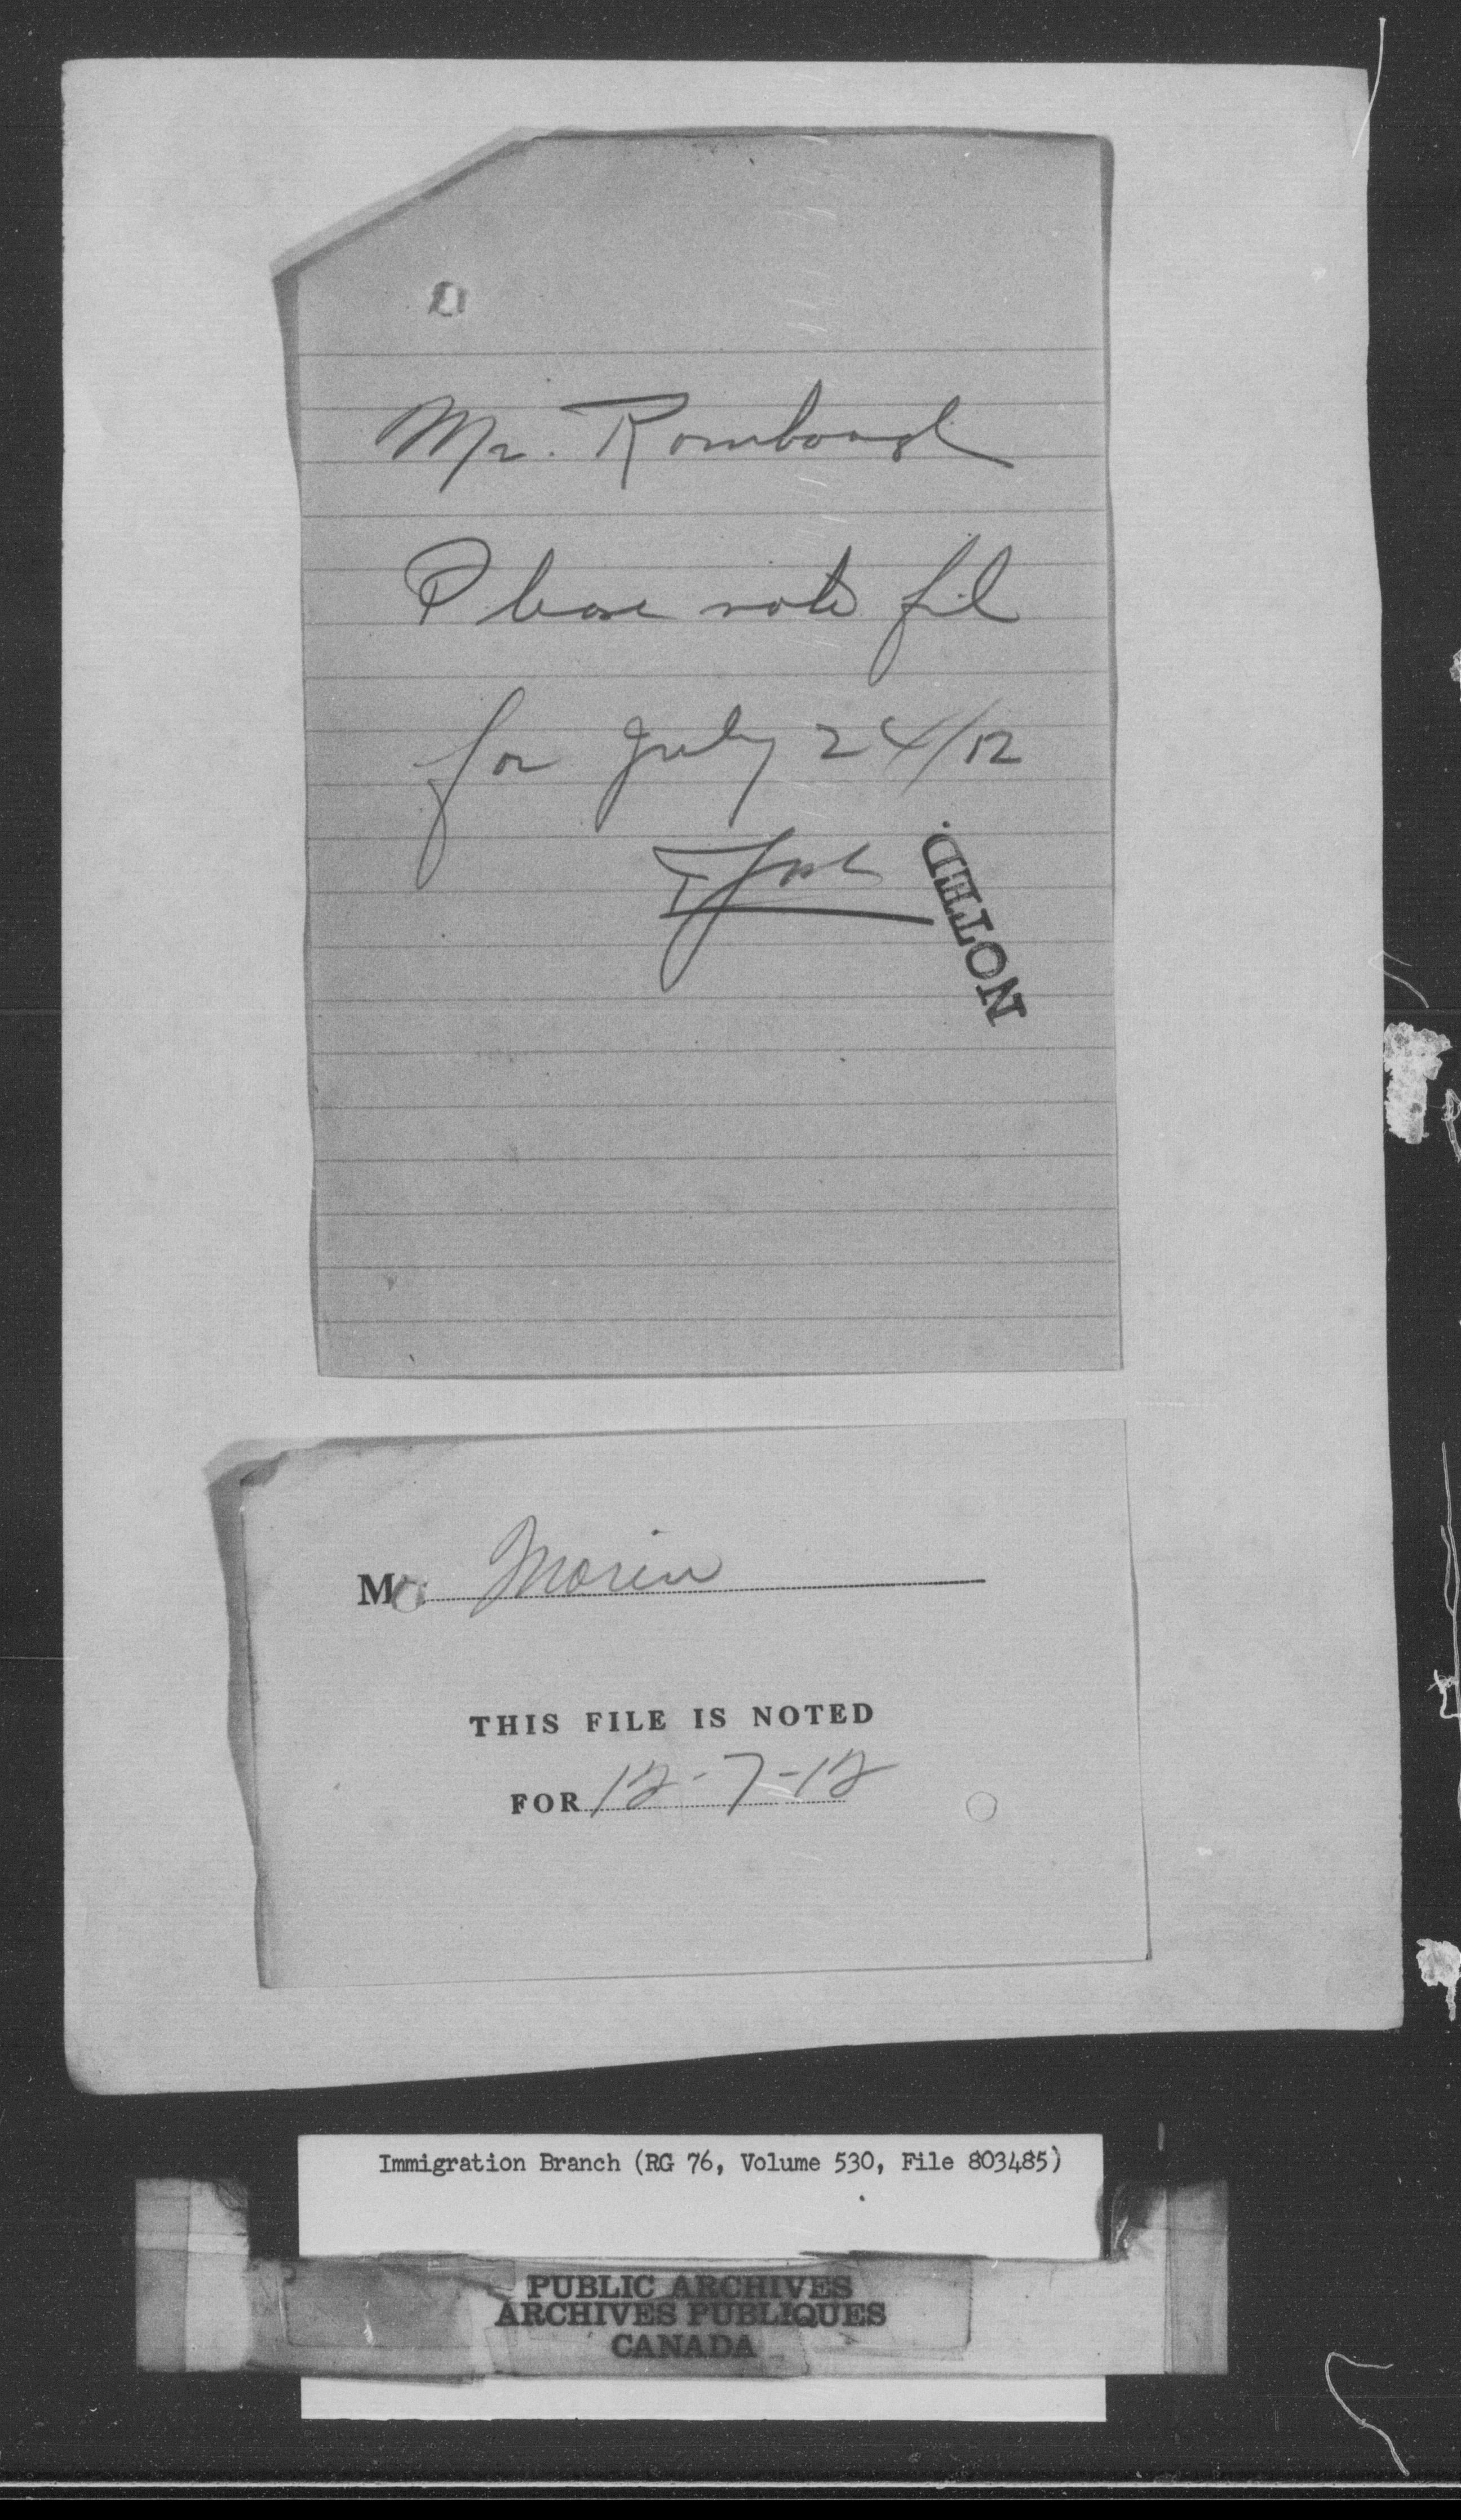 Mr. Rombough
Please note fil
for July 24/12
NOTED.
M Morin
THIS FILE IS NOTED
FOR 12-7-12
Immigration Branch (RG 76, Volume 530, File 803485)
PUBLIC ARCHIVES
ARCHIVES PUBLIQUES
CANADA